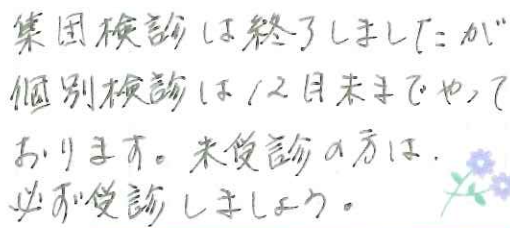 集団検診は終了しましたが
個別検診は12月末までやって
おります。未受診の方は、
必ず受診しましょう。